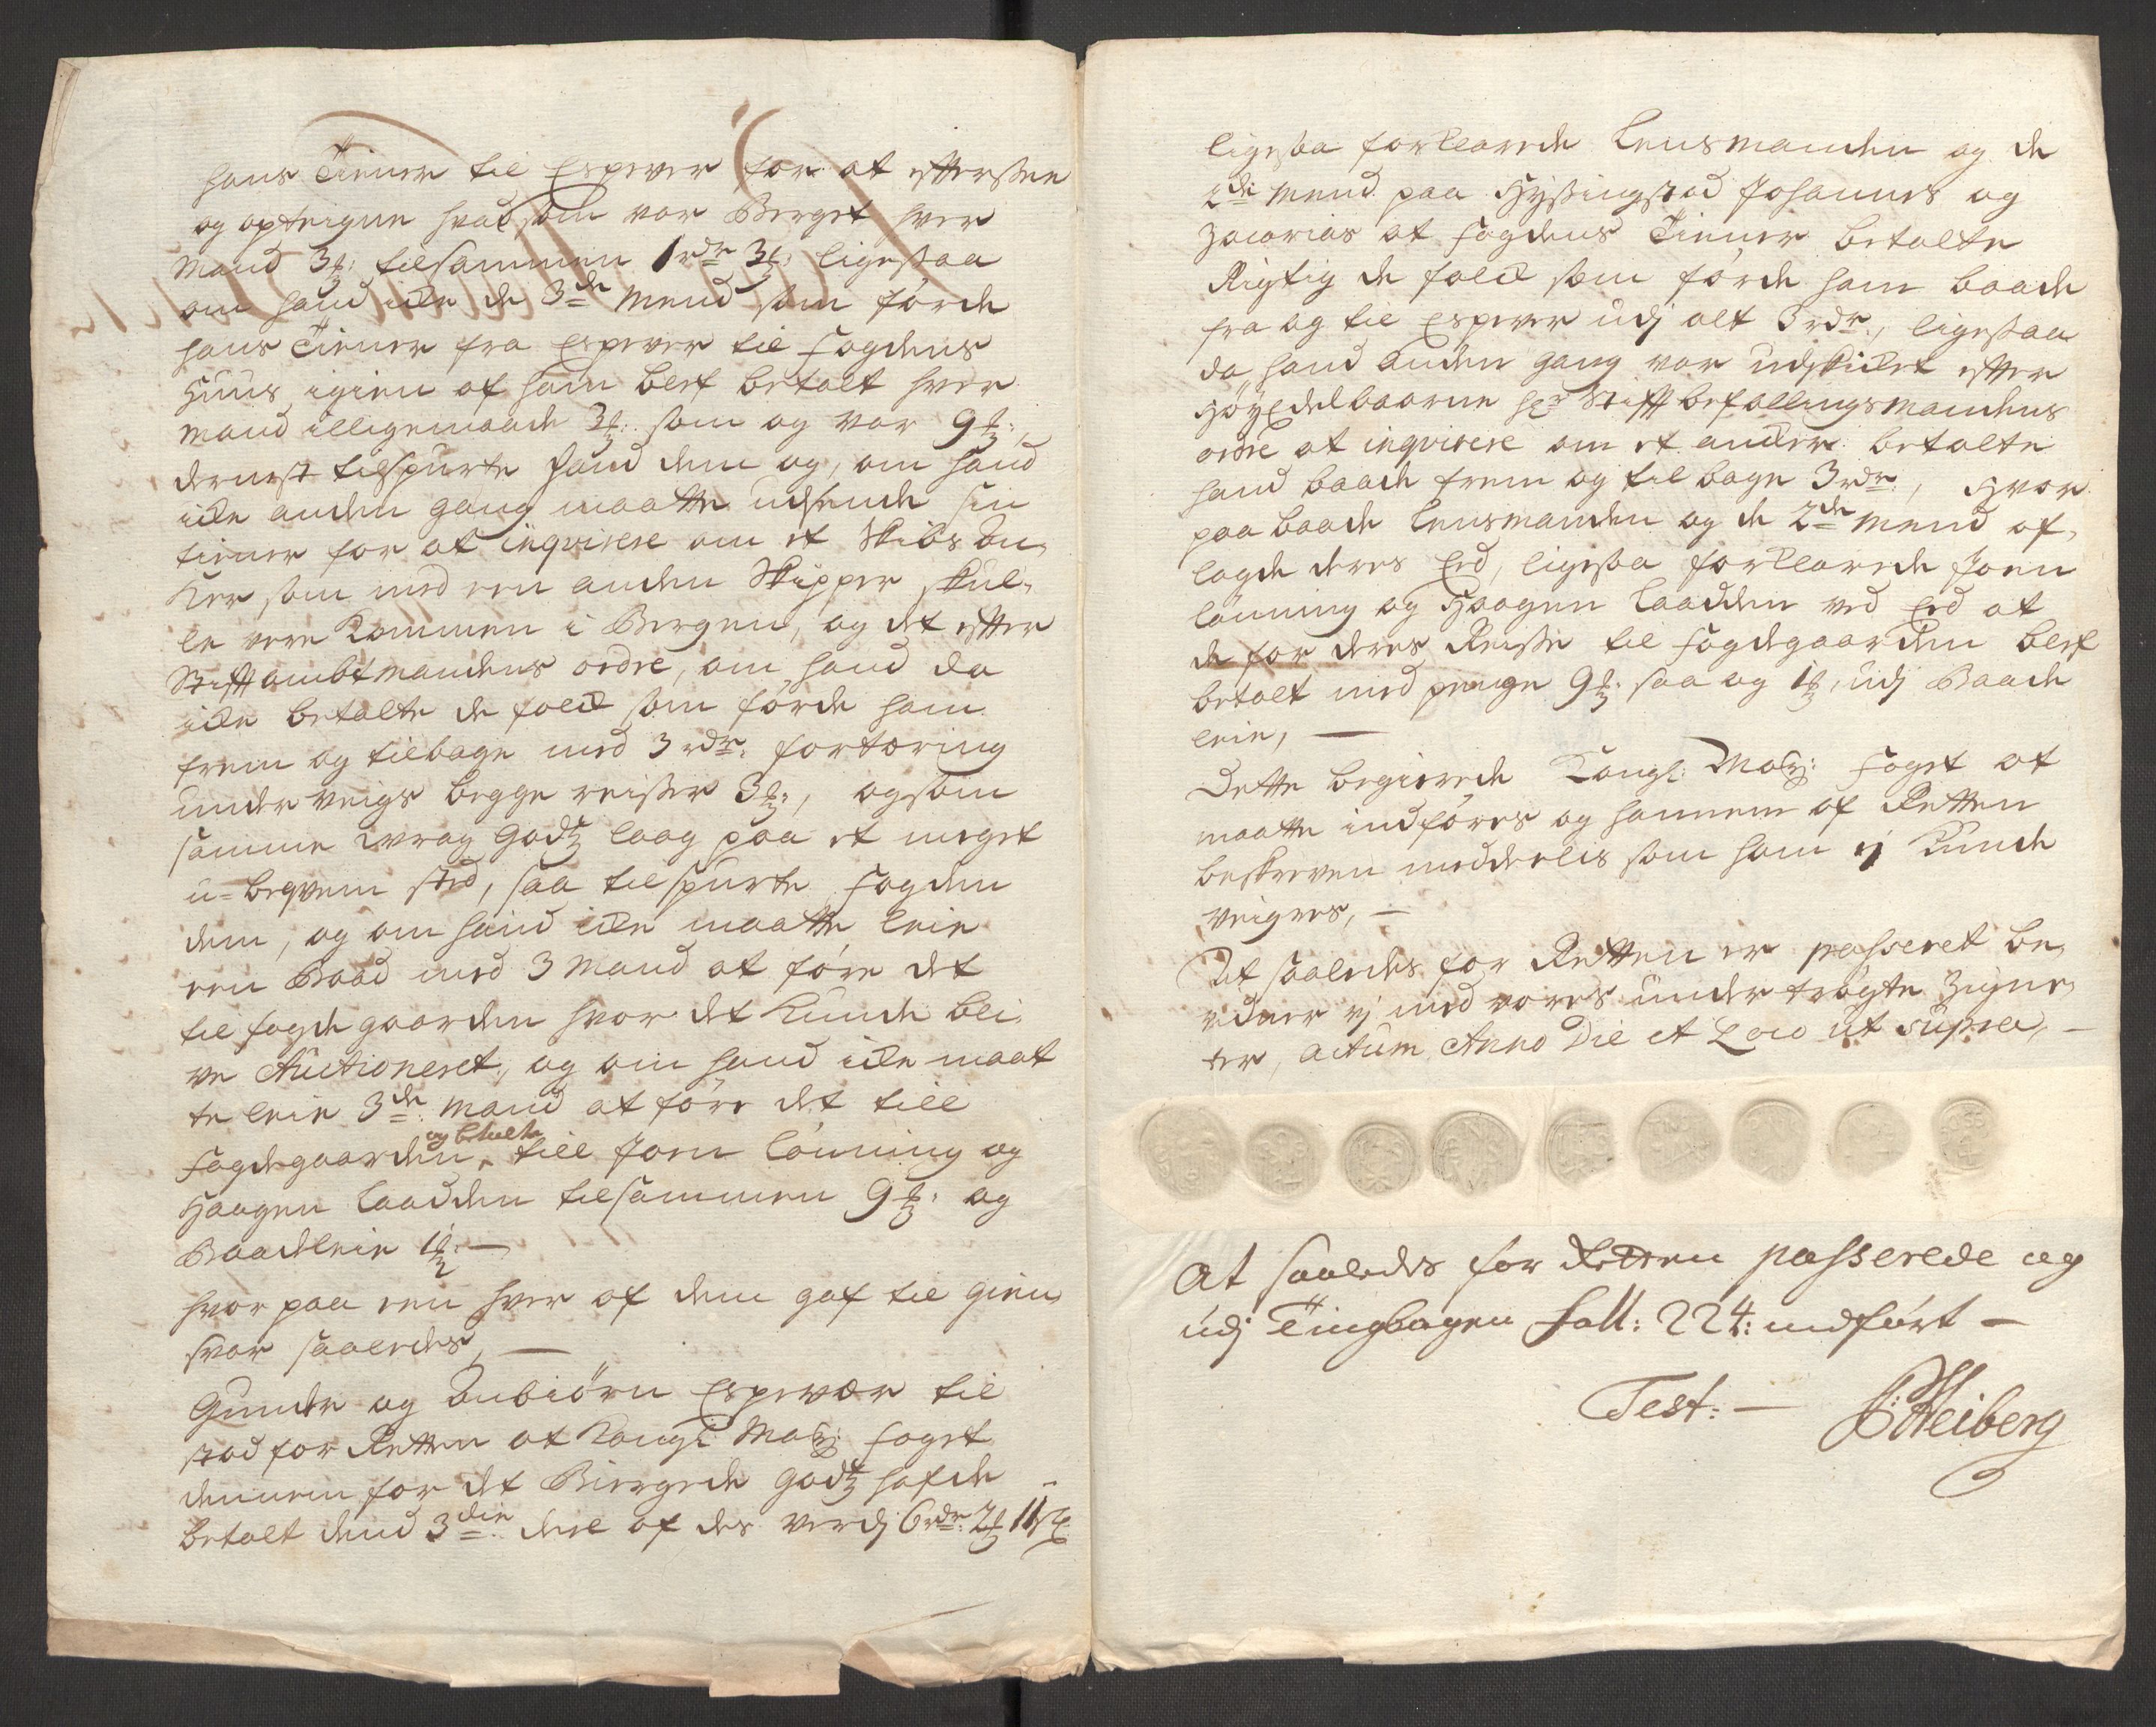 hans Tiener til Espever for at eftersee
og opteigne hvad som var Berget hver
Mand 3 ß: tilsammen 1 rdr 3 ß: ligesaa
om hand icke de 3de Mend som førde
hans Tiener fra Espever til Fogdens
Huus igien af ham blef betalt hver
Mand illigemaade 3 ß: som og var 9 ß:,
dernest tilspurte hand dem og, om hand
icke anden gang maatte udsende sin
tiener for at inqvirere om et Skibs An,
ker som med een anden Skipper skul,
le vere Kommen i Bergen, og det efter
Stiftambtmandens ordre, om hand da
icke betalte de folck som førde ham
frem og tilbage med 3 rdr: fortæring
under veigs begge reiser 3 ß:, og som
samme Wrag Godtz laag paa et meget
u-beqvem sted, saa tilspurte Fogden
dem, og om hand icke maatte leie
een Baad med 3 Mand at føre det
til fogde gaarden hvor det Kunde bli,
ve Auctioneret, og om hand icke maat
te leie 3de Mand at føre det till
Fogdegaarden og betalte till Joen Lønning og
Haagen Laadden tilsammen 9 ß: og
Baadleie 1 ß:—
hvor paa een hver af dem gaf til gien,
svar saaledes, —
Gunder og Anbiørn Espevær til
stod for Retten at Kongl: Mayt: Foget
dennem for det Biergede Godtz hafde
betalt dend 3die deel af des verdj 6 rdr: 2 ß 11 s
ligesaa forklarede Lensmanden og de
2de Mend paa Hysingstad Johannes og
Zacarias at fogdens Tiener betalte
Rigtig de folck som førde ham baade
fra og til Espever udj alt 3 rdr:, ligesaa
da hand anden gang var udskicket efter
HøyEdelbaarne Hr: Stiftbefallingsmandens
ordre at inqvirere om et ancker betalte
hand baade frem og tilbage 3 rdr:, Hvor
paa baade Lensmanden og de 2de Mend af,
lagde deres Eed, ligesaa forklarede Joen
Lønning og Haagen Laadden ved Eed at
de for deres Reise til Fogdegaarden blef
betalt med penge 9 ß: saa og 1 ß, udj Baade
leie, —
Dette begierede Kongl: Mayt: Foget at
maatte indføres og hannem af Retten
beskreven meddeelis som ham ej Kunde
veigres, —
At saaledes for Retten er passeret be,
vidner vj med vores under trøgte Zigne,
ter, actum Anno Die et Loco ut supra, —
At saaledes for Retten passerede og
udj Tingbogen foll: 224: indført —
Test: — Heiberg